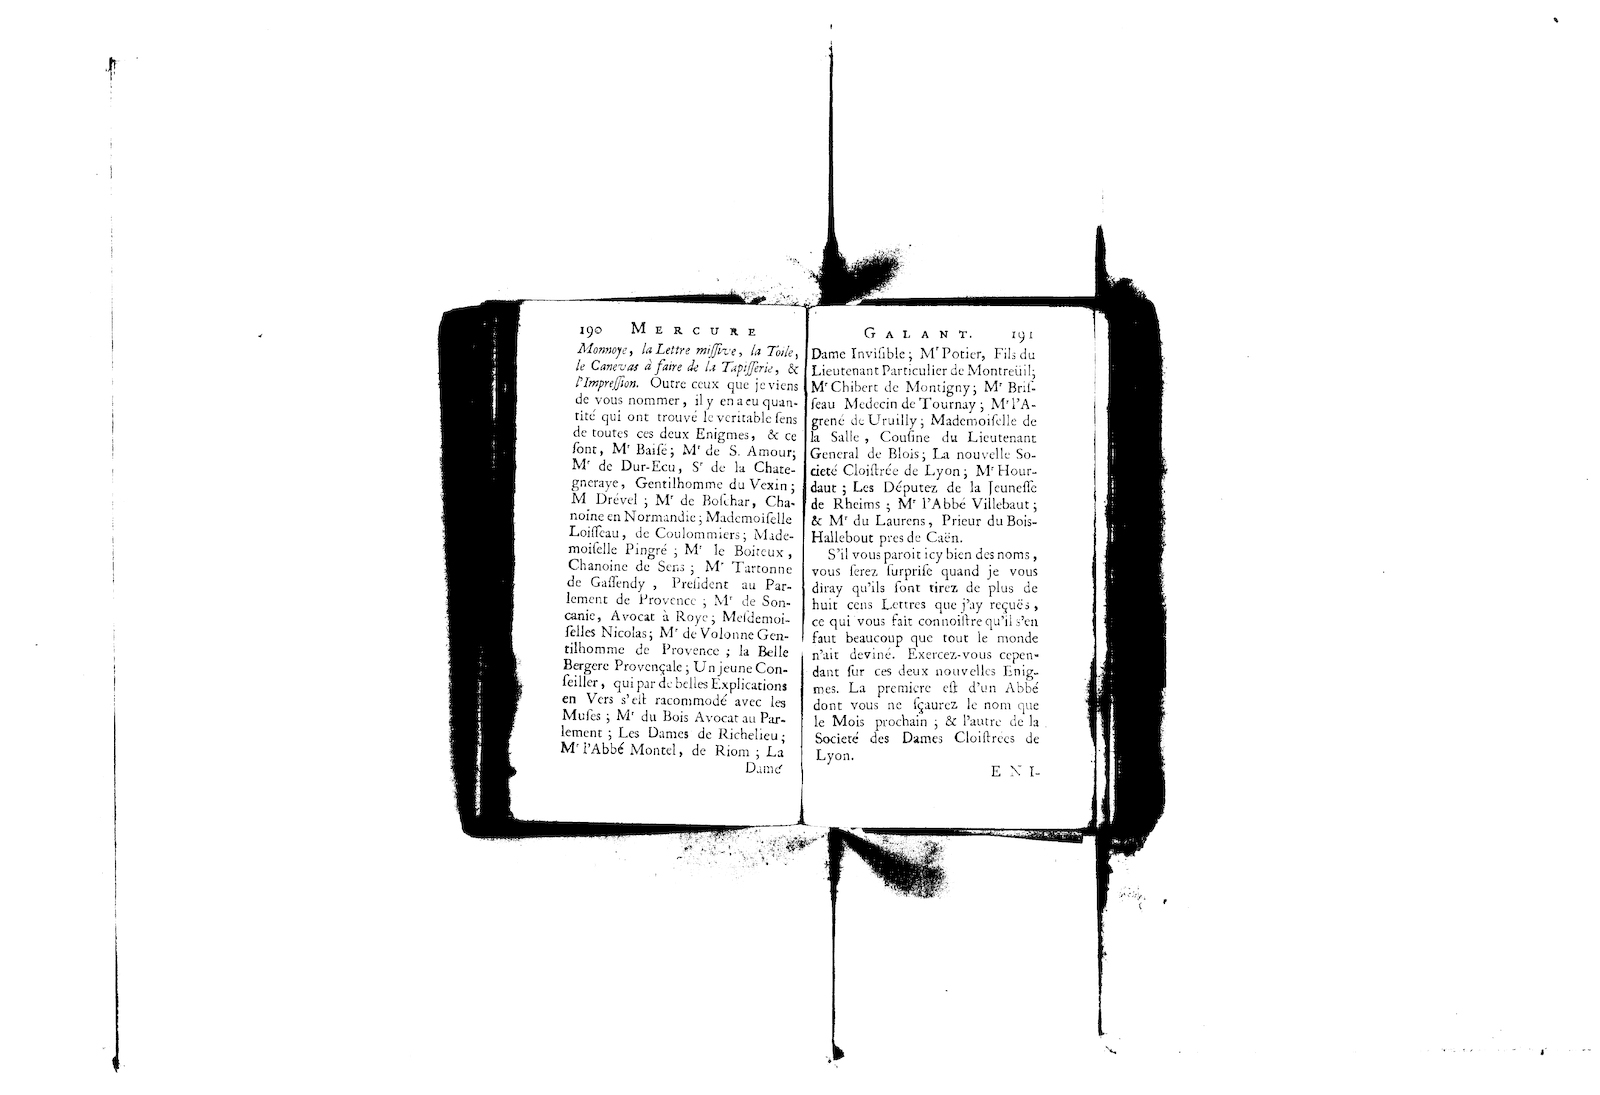 190 MERCURE
Monnoye, la Lettre miſſive, la Toile,
le Canevas à faire de la Tapiſſerie, &
l'Impreſſion. Outre ceux que je viens
de vous nommer, il y en a eu quan-
tité qui ont trouvé le veritable ſens
de toutes ces deux Enigmes, & ce
ſont, Mr Baiſé; Mr de S. Amour;
Mr de Dur-Ecu, Sr de la Chate-
gneraye, Gentilhomme du Vexin;
M Drével; Mr de Boſchar, Cha-
noine en Normandie; Mademoiſelle
Loiſſeau, de Coulommiers; Made-
moiſelle Pingré; Mr le Boiteux,
Chanoine de Sens; Mr Tartonne
de Gaſſendy, Preſident au Par-
lement de Provence; Mr de Son-
canie, Avocat à Roye; Meſdemoi-
ſelles Nicolas; Mr de Volonne Gen-
tilhomme de Provence; la Belle
Bergere Provençale; Un jeune Con-
ſeiller, qui par de belles Explications
en Vers s'eſt racommodé avec les
Muſes; Mr du Bois Avocat au Par-
lement; Les Dames de Richelieu;
Mr l'Abbé Montel, de Riom; La
Dame
GALANT. 191
Dame Inviſible; Mr Potier, Fils du
Lieutenant Particulier de Montreüil;
Mr Chibert de Montigny; Mr Briſ-
ſeau Medecin de Tournay; Mr l'A-
grené de Uruilly; Mademoiſelle de
la Salle, Couſine du Lieutenant
General de Blois; La nouvelle So-
cieté Cloiſtrée de Lyon; Mr Hour-
daut; Les Députez de la Jeuneſſe
de Rheims; Mr l'Abbé Villebaut;
& Mr du Laurens, Prieur du Bois-
Hallebout pres de Caën.
S'il vous paroit icy bien des noms,
vous ſerez ſurpriſe quand je vous
diray qu'ils ſont tirez de plus de
huit cens Lettres que j'ay reçuës,
ce qui vous fait connoiſtre qu'il s'en
faut beaucoup que tout le monde
n'ait deviné. Exercez-vous cepen-
dant ſur ces deux nouvelles Enig-
mes. La premiere eſt d'un Abbé
dont vous ne ſçaurez le nom que
le Mois prochain; & l'autre de la
Societé des Dames Cloiſtrées de
Lyon.
ENI-